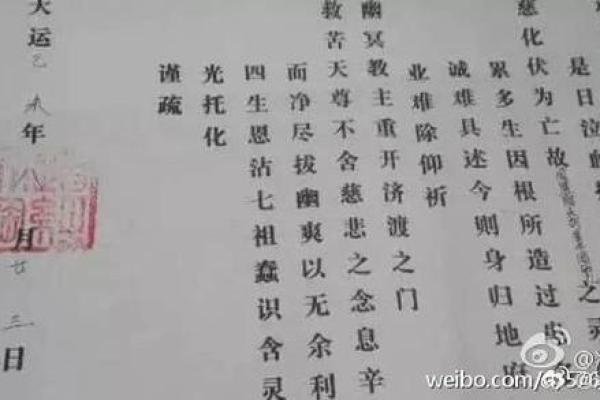 是日泣血
慈化伏为亡故
累多生因根所造过
之灵
诚难具述今则身归地府
业难除仰祈
幽冥教主重开济渡之门
救苦天尊不舍慈悲之念息辛
而净尽拔幽爽以无余利
四生恩沾七祖蠢识含灵
光托化
谨疏
天运乙未年八月廿三日
weibo.com/